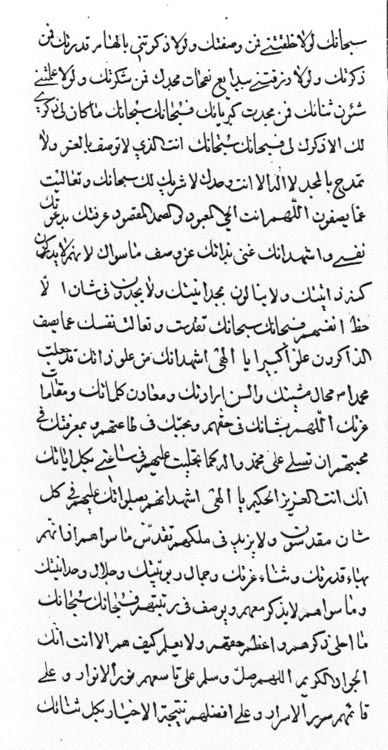 سبحانك لولا خلقتني فمن وصفتك ولولا ذكرتني بالهنا مر قدرتك فمن
ذكرتك ولولا رزقتني بدايع نفحات مجدك فمن شكرتك ولولا علمتني
شئون ثنائك فمن مجدت كبريائك فسبحانك سبحانك ما كان لي ذكري
لك الا ذكرك لي فسبحانك سبحانك انت الذي لا توصف بالعز ولا
تمدح بالمجد لا اله الا انت وحدك لا شريك لك سبحانك وتعاليت
عما يصفون اللهم انت الحي المعبود والصمد المقصود عرفتك بدعوتك
نفسي واشهد انك غني بذاتك عن وصف ما سواك لانهم لا يدركون
كنه ذاتيتك ولا ينالون مجد انيتك ولا يجدون في شان الا
حظ انفسهم فسبحانك سبحانك تقدست وتعاليت نفسك عما يصف
الذاكرون علوا كبيرا يا الهي اشهد انك من علو ذاتك قد جعلت
محمدا محال مشيتك والسن ارادتك ومعادن كلماتك ومقامات
عزتك اللهم بشانك في حقهم ومحبتك في طاعتهم وبمعرفتك في
محبتهم ان تصلي على محمد واله كما تجليت عليهم بكل اياتك
انك انت العزيز الحكيم يا الهي اشهد انهم بصلواتك عليهم في كل
شان مقدسون ولا يزيد في ملكهم تقدس ما سواهم اذ انهم
بهاء قدرتك وثناء عزتك وجمال ربوبيتك وجلال وحدانيتك
وما سواهم لا يذكر معهم ويوصف في رتبتهم فسبحانك سبحانك
ما احلى ذكرهم واعظم حقهم ولا يعلم كيف هم الا انت انك
الجواد الكريم اللهم صل وسلم على تاسعهم نور الانوار وعلى
قائمهم سر الاسرار وعلى افضلهم نتيجة الاخيار بكل شانك